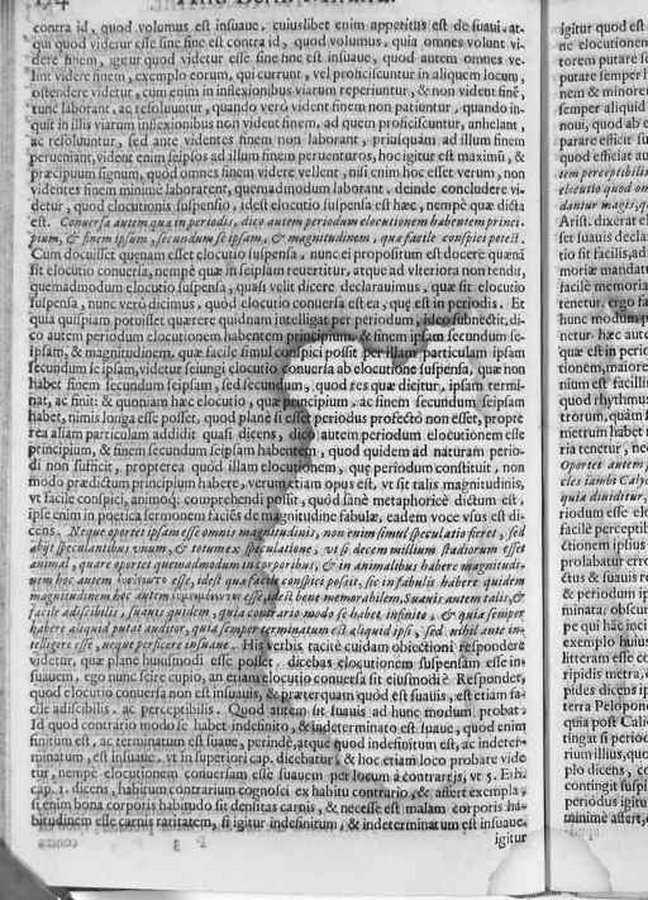 174
contra id, quod volumus est insuaue, cuiuslibet enim appetitus est de suaui, at-
qui quod videtur esse sine fine est contra id, quod volumus, quia omnes volunt vi-
dere finem, igitur quod videtur esse sine fine est insuaue, quod autem omnes ve-
lint videre finem, exemplo eorum, qui currunt, vel proficiscuntur in aliquem locum,
ostendere videtur, cum enim in inflexionibus viarum reperiuntur, & non vident finē,
tunc laborant, ac resoluuntur, quando verò vident finem non patiuntur, quando in-
quit in illis viarum inflexionibus non vident finem, ad quem proficiscuntur, anhelant,
ac resoluuntur, sed ante videntes finem non laborant, priusquàm ad illum finem
perueniant, vident enim seipsos ad illum finem peruenturos, hoc igitur est maximū, &
præcipuum signum, quod omnes finem videre vellent, nisi enim hoc esset verum, non
videntes finem minimè laborarent, quemadmodum laborant, deinde concludere vi-
detur, quod elocutionis suspensio, idest elocutio suspensa est hæc, nempè quæ dicta
est. Conuersa autem quæ in periodis, dico autem periodum elocutionem habentem princi-
pium, & finem ipsum, secundum se ipsam, & magnitudinem, quæ facile conspici potest.
Cum docuisset quænam esset elocutio suspensa, nunc ei propositum est docere quænā
sit elocutio conuersa, nempè quæ in seipsam reuertitur, atque ad vlteriora non tendit,
quemadmodum elocutio suspensa, quasi velit dicere declarauimus, quæ sit elocutio
suspensa, nunc verò dicimus, quòd elocutio conuersa est ea, quę est in periodis. Et
quia quispiam potuisset quærere quidnam intelligat per periodum, ideo subnectit, di-
co autem periodum elocutionem habentem principium, & finem ipsum secundum se-
ipsam, & magnitudinem, quæ facilè simul conspici possit per illam particulam ipsam
secundum se ipsam, videtur seiungi elocutio conuersa ab elocutione suspensa, quæ non
habet finem secundum seipsam, sed secundum, quod res quæ dicitur, ipsam termi-
nat, ac finit: & quoniam hæc elocutio, quæ principium, ac finem secundum seipsam
habet, nimis longa esse posset, quod planè si esset periodus profectò non esset, propte
rea aliam particulam addidit quasi dicens, dico autem periodum elocutionem esse
principium, & finem secundum seipsam habentem, quod quidem ad naturam perio-
di non sufficit, propterea quòd illam elocutionem, quę periodum constituit, non
modo prædictum principium habere, verum etiam opus est, vt sit talis magnitudinis,
vt facilè conspici, animoq; comprehendi possit, quod sanè metaphoricè dictum est,
ipse enim in poetica sermonem faciēs de magnitudine fabulæ, eadem voce vsus est di-
cens. Neque oportet ipsam esse omnis magnitudinis, non enim simul speculatio fieret, sed
abijt speculantibus vnum, & totum ex speculatione, vt si decem millium stadiorum esset
animal, quare oportet quemadmodum in corporibus, & in animalibus habere magnitudi-
nem hoc autem esse, idest quæ facilè conspici possit, sic in fabulis habere quidem
magnitudinem hoc autem esse, idest bene memorabilem, Suauis autem talis, &
facile adiscibilis, suauis quidem, quia contrario modo se habet infinito, & quia semper
habere aliquid putat auditor, quia semper terminatum est aliquid ipsi, sed nihil ante in-
telligere esse, neque perficere insuaue. His verbis tacitè cuidam obiectioni respondere
videtur, quæ planè huiusmodi esse posset, dicebas elocutionem suspensam esse in-
suauem, ego nunc scire cupio, an etiam elocutio conuersa sit eiusmodi? Responder,
quod elocutio conuersa non est insuauis, & præterquàm quòd est suauis, est etiam fa-
cilè adiscibilis, ac perceptibilis. Quod autem sit suauis ad hunc modum probat.
Id quod contrario modo se habet indefinito, & indeterminato est suaue, quod enim
finitum est, ac terminatum est suaue, perindè, atque quod indefinitum est, ac indeter-
minatum, est insuaue, vt in superiori cap. dicebatur, & hoc etiam loco probare vide
tur, nempè elocutionem conuersam esse suauem per locum à contrarijs, vt 5. Eth.
cap. 1. dicens, habitum contrarium cognosci ex habitu contrario, & assert exempla,
si enim bona corporis habitudo sit densitas carnis, & necesse est malam corporis ha-
bitudinem esse carnis raritatem, si igitur indefinitum, & indeterminatum est insuaue,
igitur
igitur quod est
ne elocutionem
torem putare
putare semper
nem & minorem
semper aliquid
noui, quod ab
parare efficit
quod efficiat
tem perceptibilis
elocutio quod
dantur magis,
Arist. dixerat
set suauis decla
tio sit facilis, ad
moriæ mandat
facile memoria
tenetur, ergo
hunc modum
netur, hæc aut
quæ est in perio
tionem, maiorem
nium est facilli
quod rhythmus
trorum, quàm
metrum habet
ria tenetur,
Oportet autem
cles iambi
quia diuiditur,
riodum esse
facilè perceptib
ctionem ipsius
probabatur
ctus & suauis
& periodum
minata; obscu
pe qui hâc inci
exemplo huius
litteram esse
ripidis metra,
pides dicens
terra Pelopon
quia post Cali
tingat si period
rium illius, quo
plo dicens,
contingit suspi
periodus igitu
minimè assert,